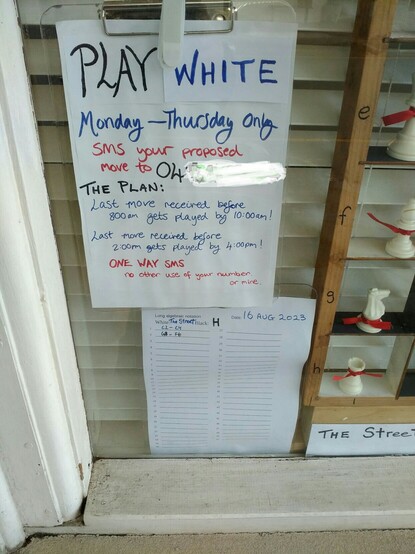 PLAY WHITE
Monday - Thursday Only
SMS your proposed
move to 04
THE PLAN:
Last move received before
8:00am gets played by 10:00am!
Last move received before
2:00pm gets played by 4:00pm!
ONE WAY SMS
no other use of your number
or mine.
Long algebraic notation
White The Street Black H Date 16 AUG 2023
e
f
g
h
THE Street